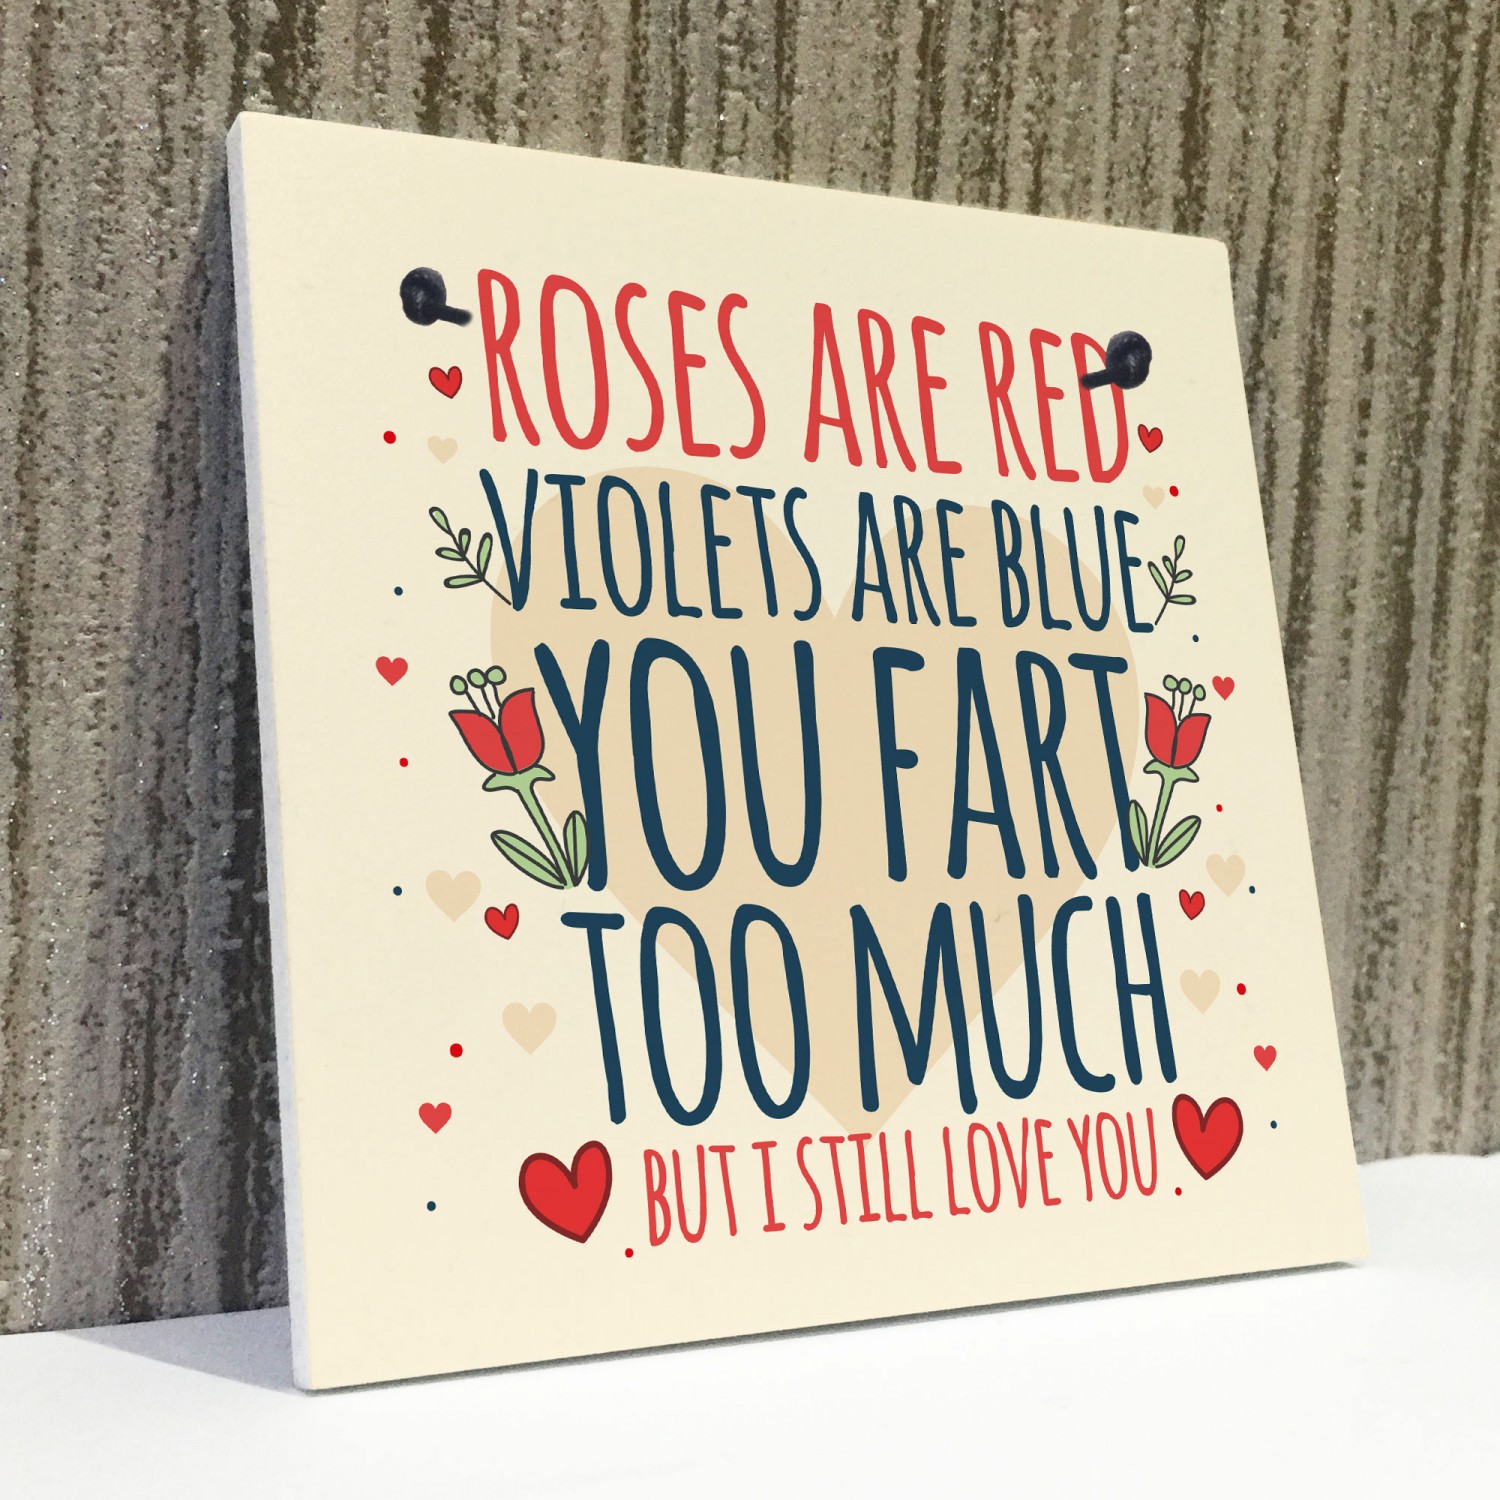 ROSES ARE RED
VIOLETS ARE BLUE
YOU FART
TOO MUCH
BUT I STILL LOVE YOU